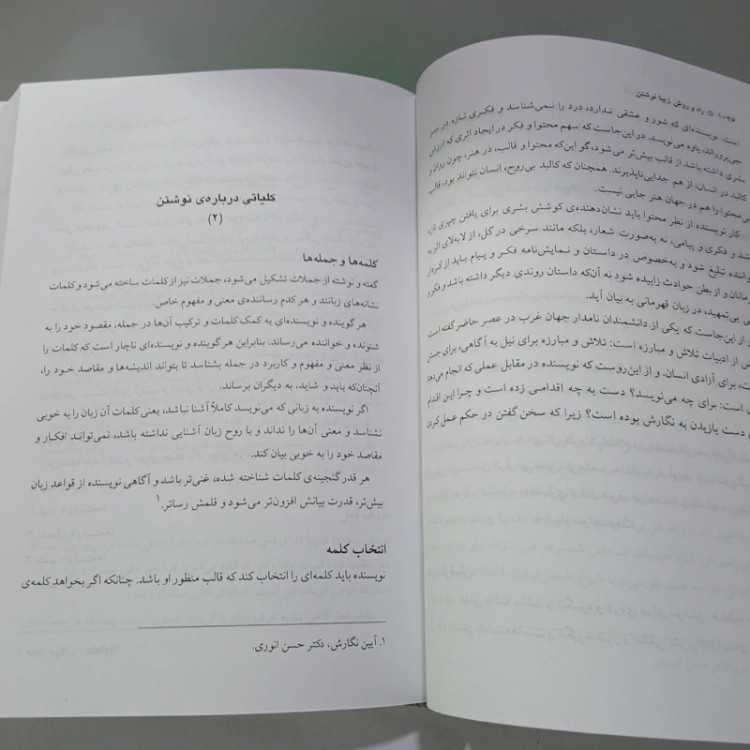 ۱۰۹۶ © راه و روش زیبا نوشتن
است. نویسنده‌ای که شور و عشقی ندارد، درد را نمی‌شناسد و فکری تازه در سر
نمی‌پروراند، یاوه می‌نویسد. در این‌جاست که سهم محتوا و فکر در ایجاد اثری که ارزش
بشری داشته باشد از قالب بیش‌تر می‌شود، گو این‌که محتوا و قالب، در هنر، چون روان و
کالبد در انسان، از هم جدایی‌ناپذیرند. همچنان که کالبد بی‌روح، انسان نتواند بود، قالب
بی محتوا را هم در جهان هنر جایی نیست.
کار نویسنده از نظر محتوا باید نشان‌دهنده‌ی کوشش بشری برای یافتن چیزی تازه
و فکری و پیامی، نه به‌صورت شعار، بلکه مانند سرخی در گل، از لابه‌لای اثر به
خواننده تبلیغ شود و به‌خصوص در داستان و نمایش‌نامه فکر و پیام باید از کردار
و از بطن حوادث زاییده شود نه آن‌که داستان روندی دیگر داشته باشد و فکر و
بی تمهید، در زبان قهرمانی به بیان آید.
و از این‌جاست که یکی از دانشمندان نامدار جهان غرب در عصر حاضر گفته است
از ادبیات تلاش و مبارزه است: تلاش و مبارزه برای نیل به آگاهی، برای جستن
برای آزادی انسان. و از این‌روست که نویسنده در مقابل عملی که انجام می‌دهد
است: برای چه می‌نویسد؟ دست به چه اقدامی زده است و چرا این اقدام
دست یازیدن به نگارش بوده است؟ زیرا که سخن گفتن در حکم عمل کردن
کلیاتی درباره‌ی نوشتن
(۲)
کلمه‌ها و جمله‌ها
گفته و نوشته از جملات تشکیل می‌شود، جملات نیز از کلمات ساخته می‌شود و کلمات
نشانه‌های زبانند و هر کدم رساننده‌ی معنی و مفهوم خاص.
هر گوینده و نویسنده‌ای به کمک کلمات و ترکیب آن‌ها در جمله، مقصود خود را به
شنونده و خواننده می‌رساند. بنابراین هر گوینده و نویسنده‌ای ناچار است که کلمات را
از نظر معنی و مفهوم و کاربرد در جمله بشناسد تا بتواند اندیشه‌ها و مقاصد خود را،
آنچنان‌که باید و شاید، به دیگران برساند.
اگر نویسنده به زبانی که می‌نویسد کاملاً آشنا نباشد، یعنی کلمات آن زبان را به خوبی
نشناسد و معنی آن‌ها را نداند و با روح زبان آشنایی نداشته باشد، نمی‌تواند افکار و
مقاصد خود را به خوبی بیان کند.
هر قدر گنجینه‌ی کلمات شناخته شده، غنی‌تر باشد و آگاهی نویسنده از قواعد زبان
بیش‌تر، قدرت بیانش افزون‌تر می‌شود و قلمش رساتر.۱
انتخاب کلمه
نویسنده باید کلمه‌ای را انتخاب کند که قالب منظور او باشد. چنانکه اگر بخواهد کلمه‌ی
۱. آیین نگارش، دکتر حسن انوری.